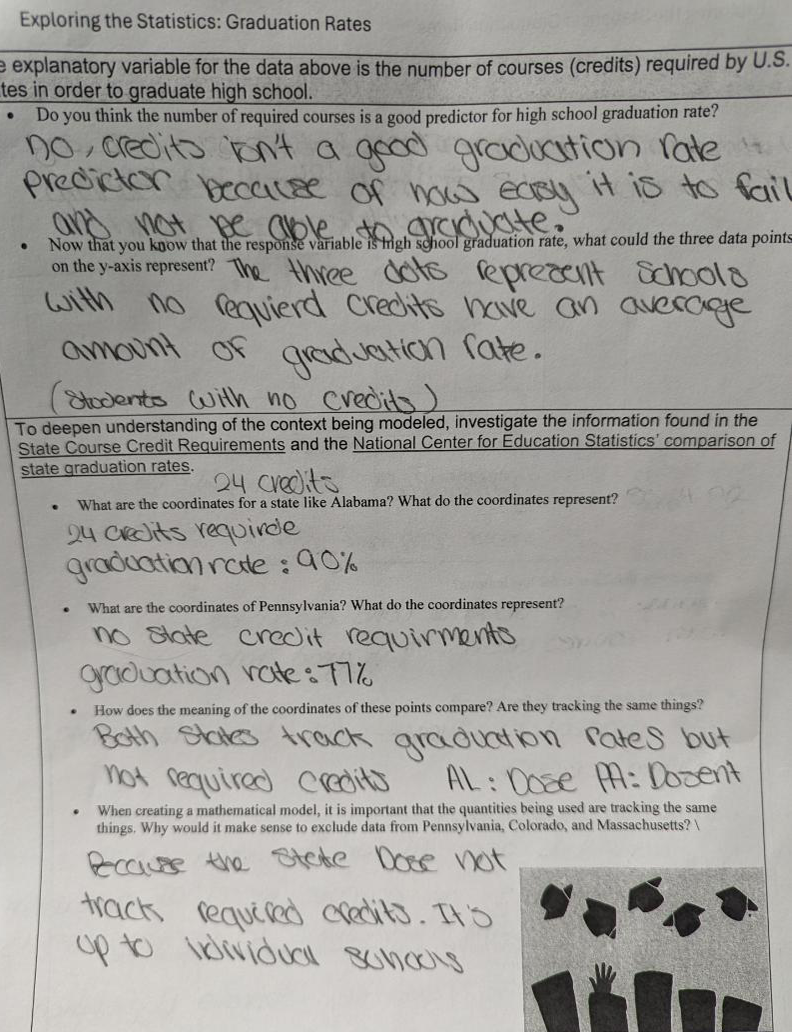 Exploring the Statistics: Graduation Rates
e explanatory variable for the data above is the number of courses (credits) required by U.S.
tes in order to graduate high school.
• Do you think the number of required courses is a good predictor for high school graduation rate?
no, credits isn't a good graduation rate
predictor because of how easy it is to fail
and not be able to graduate.
• Now that you know that the response variable is high school graduation rate, what could the three data points
on the y-axis represent? The three dots represent schools
with no requierd credits have an average
amount of graduation rate.
(Students with no credits)
To deepen understanding of the context being modeled, investigate the information found in the
State Course Credit Requirements and the National Center for Education Statistics' comparison of
state graduation rates.
24 credits
• What are the coordinates for a state like Alabama? What do the coordinates represent?
24 credits requirde
graduation rate : 90%
• What are the coordinates of Pennsylvania? What do the coordinates represent?
no state credit requirments
graduation rate : 77%
• How does the meaning of the coordinates of these points compare? Are they tracking the same things?
Both states track graduation rates but
not required credits AL : Dose PA : Dosent
• When creating a mathematical model, it is important that the quantities being used are tracking the same
things. Why would it make sense to exclude data from Pennsylvania, Colorado, and Massachusetts? \
Because the state Dose not
track required credits. It's
up to individual schools